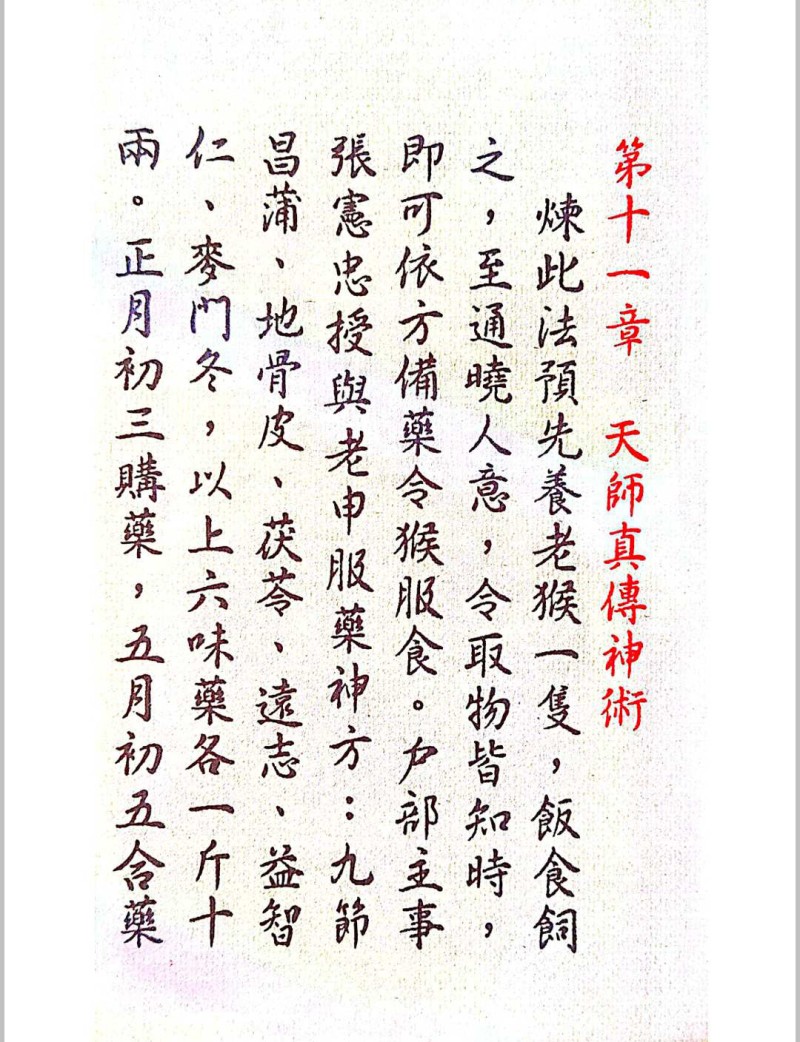 第十一章　天師真傳神術
煉此法預先養老猴一隻，飯食飼
之，至通曉人意，令取物皆知時，
即可依方備藥令猴服食。户部主事
張憲忠授與老申服藥神方：九節
昌蒲、地骨皮、茯苓、遠志、益智
仁、麥門冬，以上六味藥各一斤十
兩。正月初三購藥，五月初五合藥